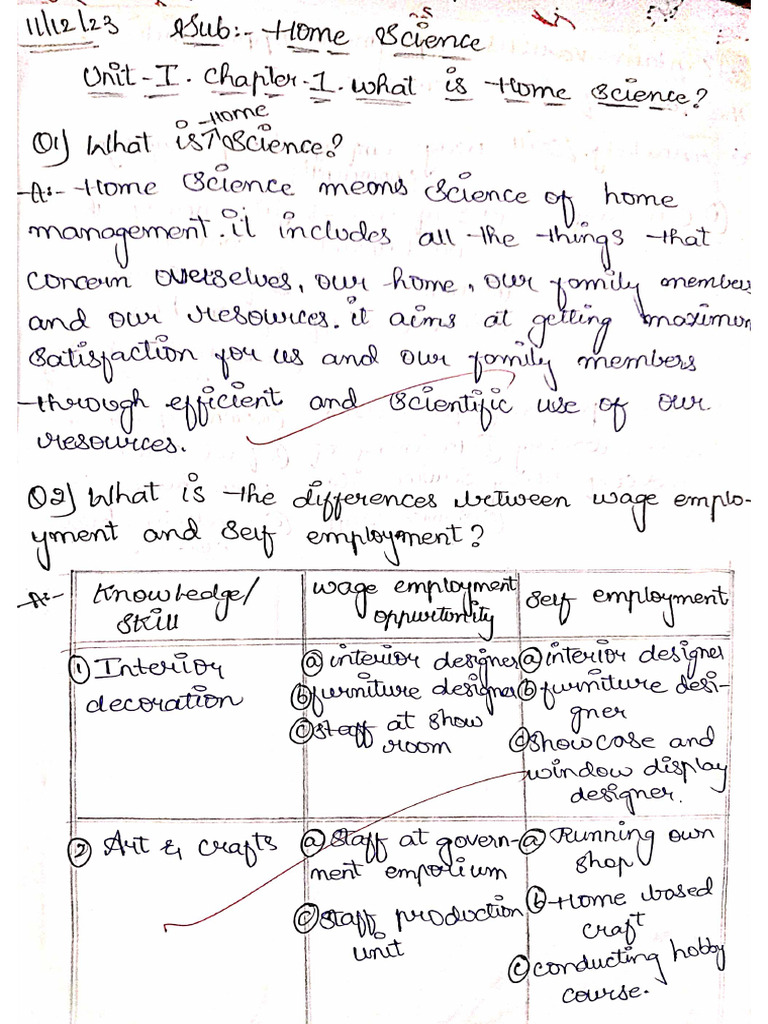 11/12/23 Sub:- Home Science
Unit-I. Chapter-1. What is Home Science?
Home
Q1) What is Science?
A:- Home Science means Science of home
management. it includes all the things that
concern ourselves, our home, our family members
and our resources. it aims at getting maximum
satisfaction for us and our family members
through efficient and scientific use of our
resources.
Q2) What is the differences between wage emplo-
yment and self employment?
A:- Knowledge/
Skill
wage employment
oppurtunity
Self employment
① Interior
decoration
ⓐ interior designer
ⓑ furniture designer
ⓒ staff at show
room
ⓐ interior designer
ⓑ furniture desi-
gner
ⓒ Showcase and
window display
designer.
② Art & crafts
ⓐ Staff at govern-
ment emporium
ⓒ Staff production
unit
ⓐ Running own
shop
ⓑ Home based
craft
ⓒ conducting hobby
course.